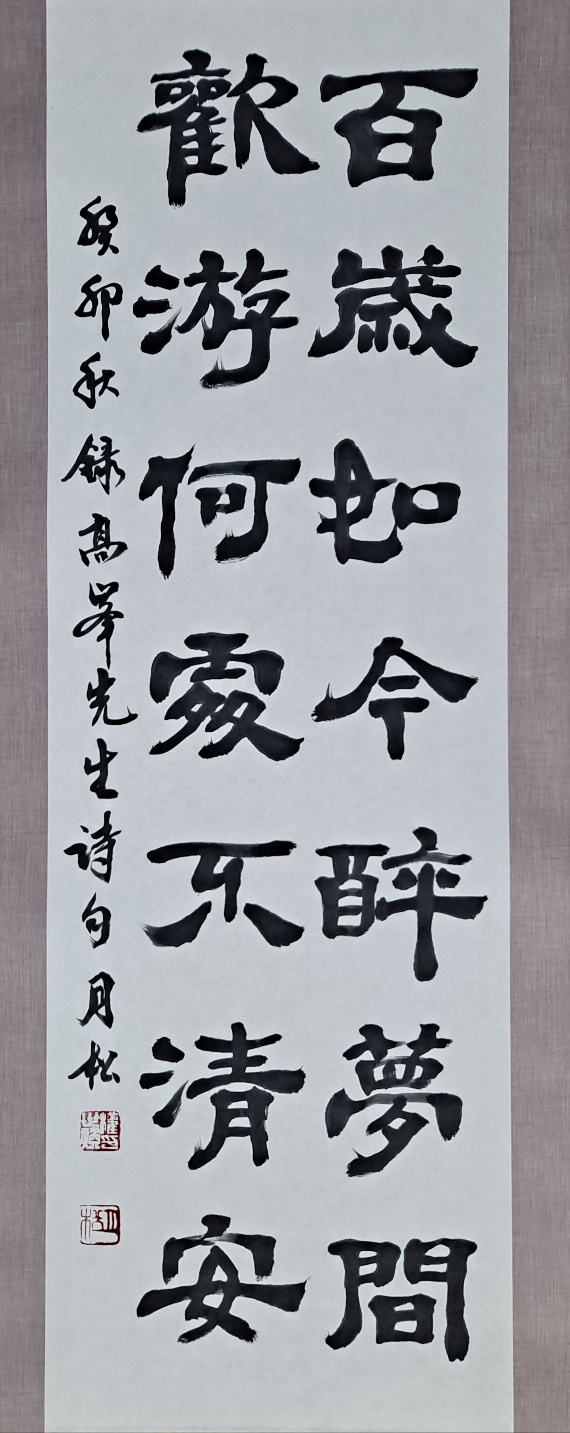 百歲如今醉夢間
歡游何處不清安
癸卯秋録髙峯先生詩句月松